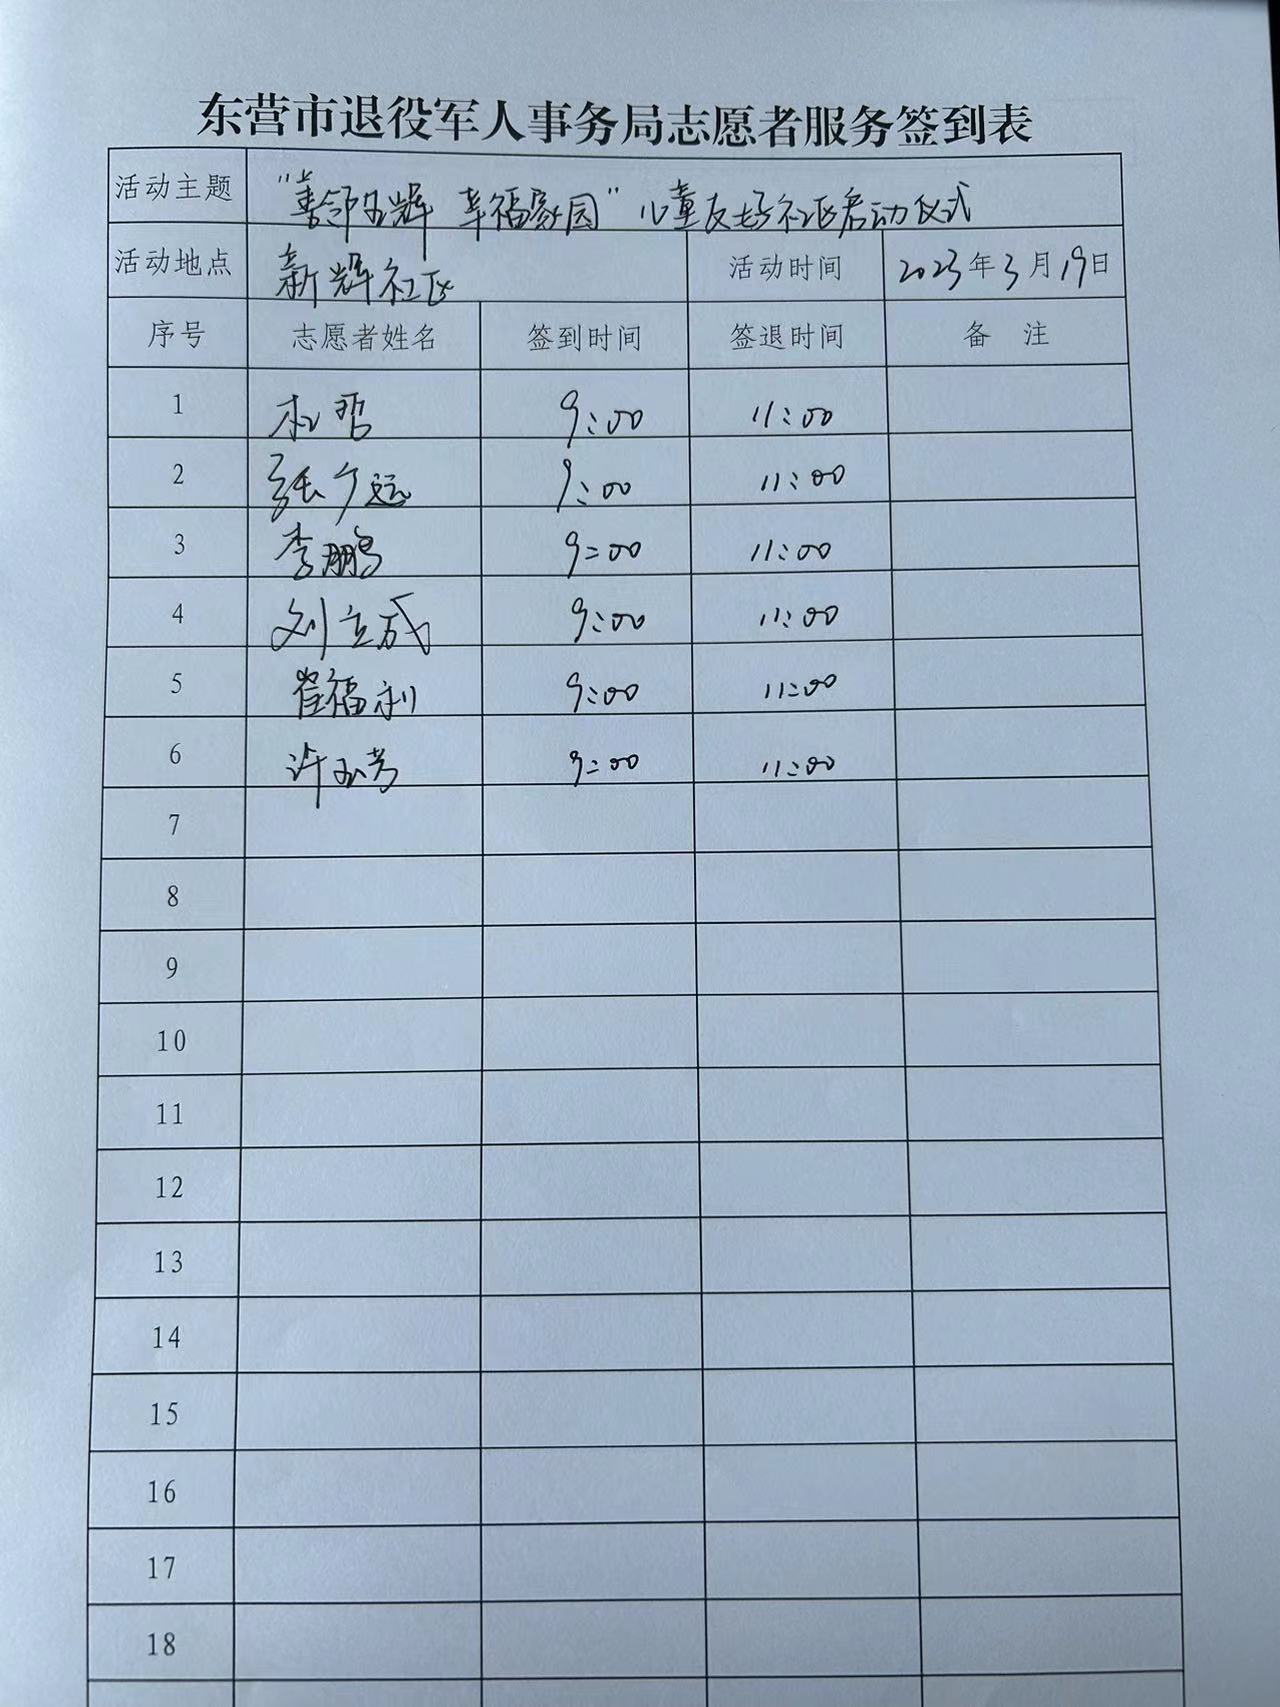 东营市退役军人事务局志愿者服务签到表
活动主题 "善邻五辉 幸福家园"儿童友好社区启动仪式
活动地点 新辉社区 活动时间 2023年3月19日
序号 志愿者姓名 签到时间 签退时间 备 注
1 杜哲 9:00 11:00
2 张广远 9:00 11:00
3 李鹏 9:00 11:00
4 刘立成 9:00 11:00
5 崔福利 9:00 11:00
6 许玉芳 9:00 11:00
7
8
9
10
11
12
13
14
15
16
17
18